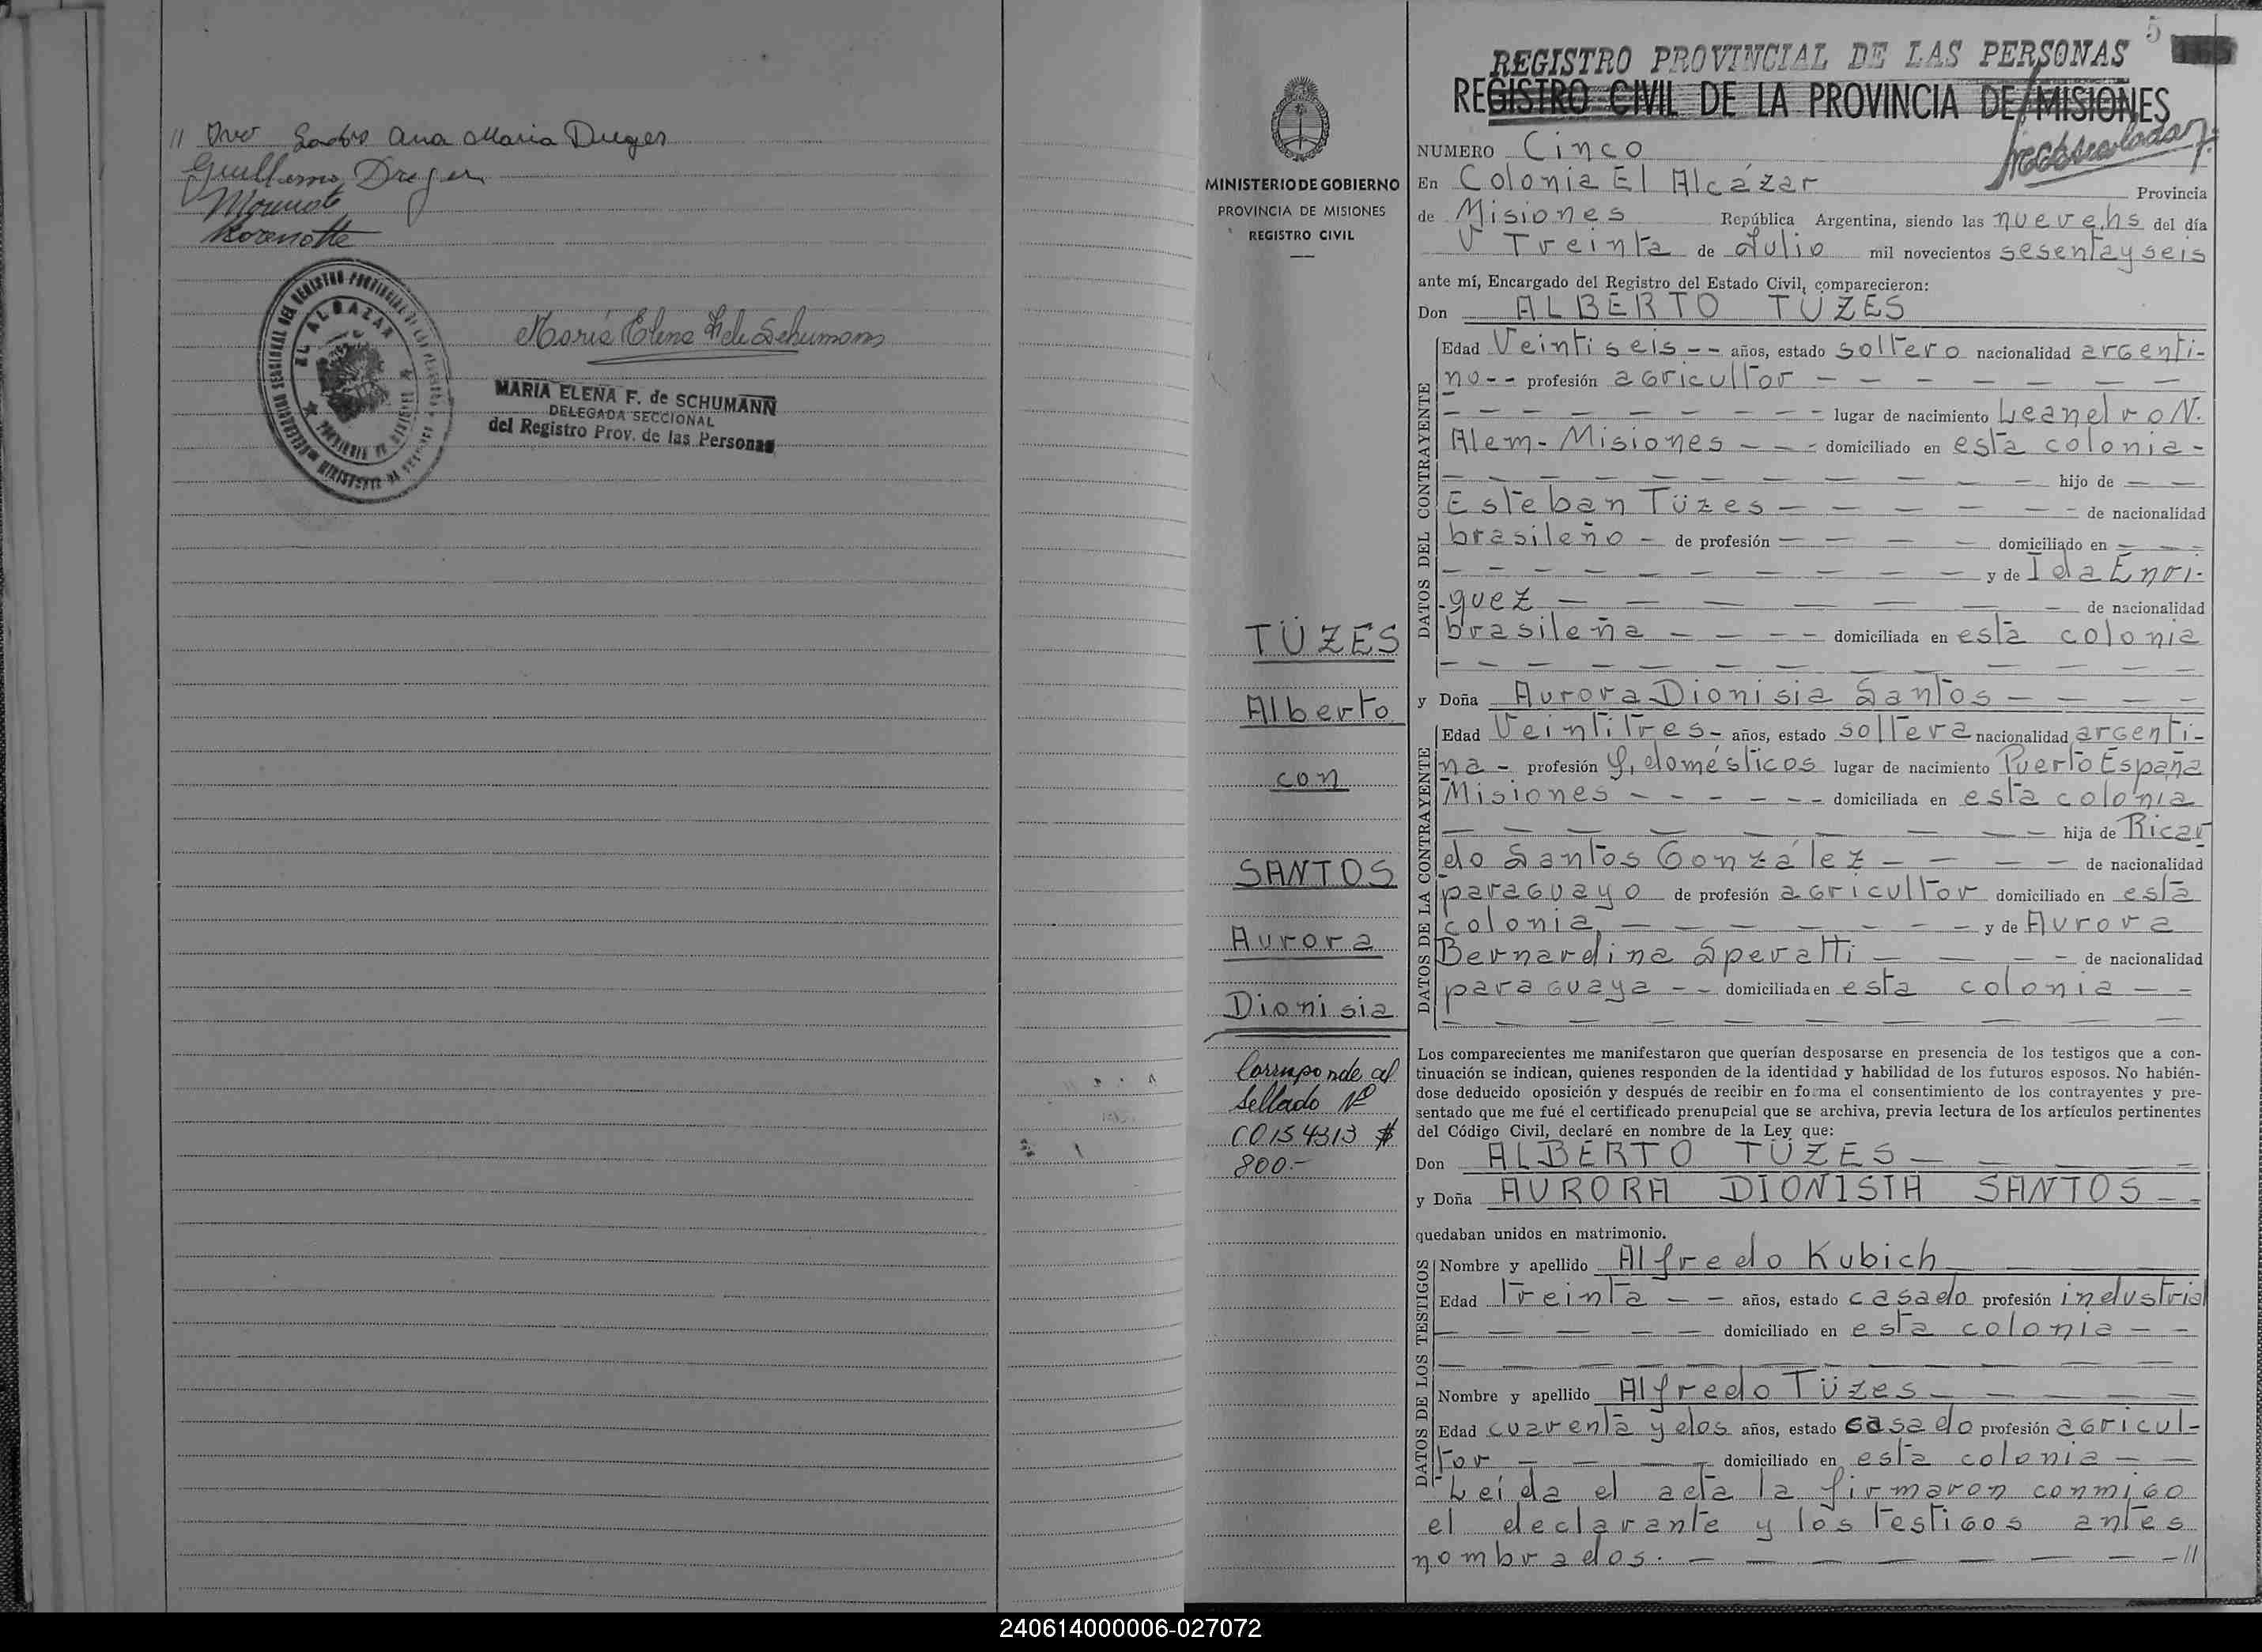 // Ivo Santos Ana Maria Dreger
Guillermo Dreger
Maria Elena F. de Schumann
MARIA ELENA F. de SCHUMANN
DELEGADA SECCIONAL
del Registro Prov. de las Personas
EL ALCAZAR
MINISTERIO DE GOBIERNO
PROVINCIA DE MISIONES
REGISTRO CIVIL
TÜZES
Alberto
con
SANTOS
Aurora
Dionisia
Corresponde al
Sellado Nº
C0154313 $
800.-
5
REGISTRO PROVINCIAL DE LAS PERSONAS
REGISTRO CIVIL DE LA PROVINCIA DE MISIONES
NUMERO Cinco
En Colonia El Alcázar Provincia
de Misiones República Argentina, siendo las nueve hs del día
Treinta de Julio mil novecientos sesenta y seis
ante mí, Encargado del Registro del Estado Civil, comparecieron:
Don ALBERTO TÜZES
DATOS DEL CONTRAYENTE
Edad Veintiseis -- años, estado soltero nacionalidad argenti-
no -- profesión agricultor - - - - - - -
- - - - - - - - - lugar de nacimiento Leandro N.
Alem - Misiones - - - domiciliado en esta colonia -
- - - - - - - - - hijo de - -
Esteban Tüzes - - - - - - - de nacionalidad
brasileño - de profesión - - - - domiciliado en - - -
- - - - - - - - - y de Ida Enri-
-quez - - - - - - - de nacionalidad
brasileña - - - - domiciliada en esta colonia
- - - - - - - - - - - -
y Doña Aurora Dionisia Santos - - - -
DATOS DE LA CONTRAYENTE
Edad Veintitres - años, estado soltera nacionalidad argenti-
na - profesión q. domésticos lugar de nacimiento Puerto España
Misiones - - - - - - domiciliada en esta colonia
- - - - - - - - hija de Ricar
do Santos González - - - - de nacionalidad
paraguayo de profesión agricultor domiciliado en esta
colonia, - - - - - - - y de Aurora
Bernardina Speratti - - - - de nacionalidad
paraguaya - - domiciliada en esta colonia - -
- - - - - - - - - -
Los comparecientes me manifestaron que querían desposarse en presencia de los testigos que a con-
tinuación se indican, quienes responden de la identidad y habilidad de los futuros esposos. No habién-
dose deducido oposición y después de recibir en forma el consentimiento de los contrayentes y pre-
sentado que me fué el certificado prenupcial que se archiva, previa lectura de los artículos pertinentes
del Código Civil, declaré en nombre de la Ley que:
Don ALBERTO TÜZES - - - - -
y Doña AURORA DIONISIA SANTOS - -
quedaban unidos en matrimonio.
DATOS DE LOS TESTIGOS
Nombre y apellido Alfredo Kubich - - -
Edad treinta - - años, estado casado profesión industrial
- - - - - domiciliado en esta colonia - -
- - - - - - - - - - - -
Nombre y apellido Alfredo Tüzes - - - - -
Edad cuarenta y dos años, estado casado profesión agricul-
tor - - - - domiciliado en esta colonia - -
Leída el acta la firmaron conmigo
el declarante y los testigos antes
nombrados. - - - - - - - //
240614000006-027072